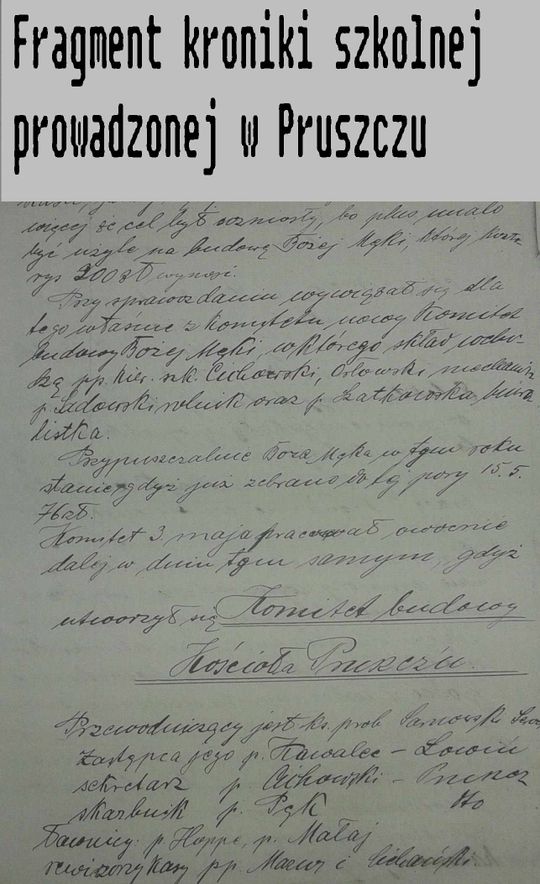 Fragment kroniki szkolnej
prowadzonej w Pruszczu
więcej że cel był wzniosły, bo plus miało
być użyte na budowę Bożej Męki, której koszto
rys 200 zł wynosi.
Przy sprawozdaniu wywiązał się dla
tego własnie z Komitetu nowy Komitet
budowy Bożej Męki, w którego skład wcho-
szą pp. kier. szk. Cichowski, Orłowski,
p. Sadowski rolnik oraz p. Szatkowska, biura
listka.
Przypuszczalnie Boża Męka w tym roku
stanie, gdyż już zebrano do tej pory 15. 5.
76 zł.
Komitet 3. maja pracował owocnie
dalej w dniu tym samym, gdyż
utworzył się Komitet budowy
Kościoła Pruszczu.
Przewodniczący jest ks. prob. Sarnowski
Zastępca jego p. Kawalec - Łowiń
sekretarz p. Cichowski - Pruszcz
skarbnik p. Pąk
Ławnicy: p. Hoppe, p. Małaj
rewizorzy kasy pp. Mazur i